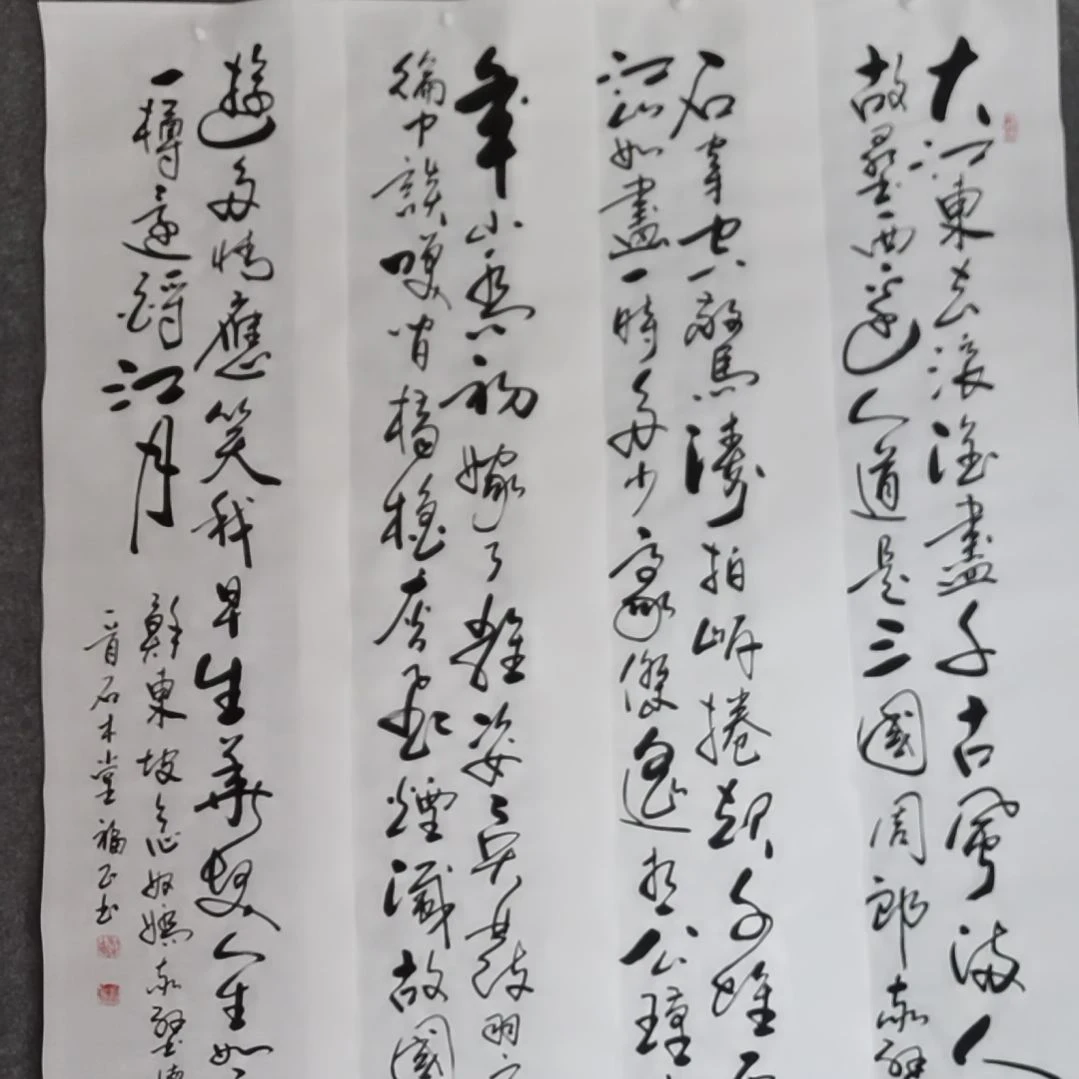 大江東去浪淘盡千古風流人
故壘西邊人道是三國周郎赤壁
石穿空驚濤拍岸捲起千堆雪
江山如畫一時多少豪傑遙想公瑾
年小喬初嫁了雄姿英發羽扇
綸巾談笑間檣櫓灰飛煙滅故國
遊多情應笑我早生華髮人生如
一樽還酹江月
蘇東坡念奴嬌赤壁懷
一首石木堂福正書